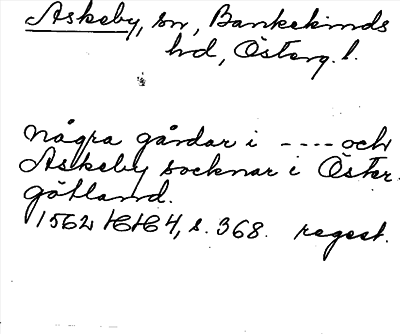 Askeby, sn, Bankekinds
hd, Österg. l.
Några gårdar i ---- och
Askeby socknar i Öster-
götland.
1562 HH 4, s. 368. regest.